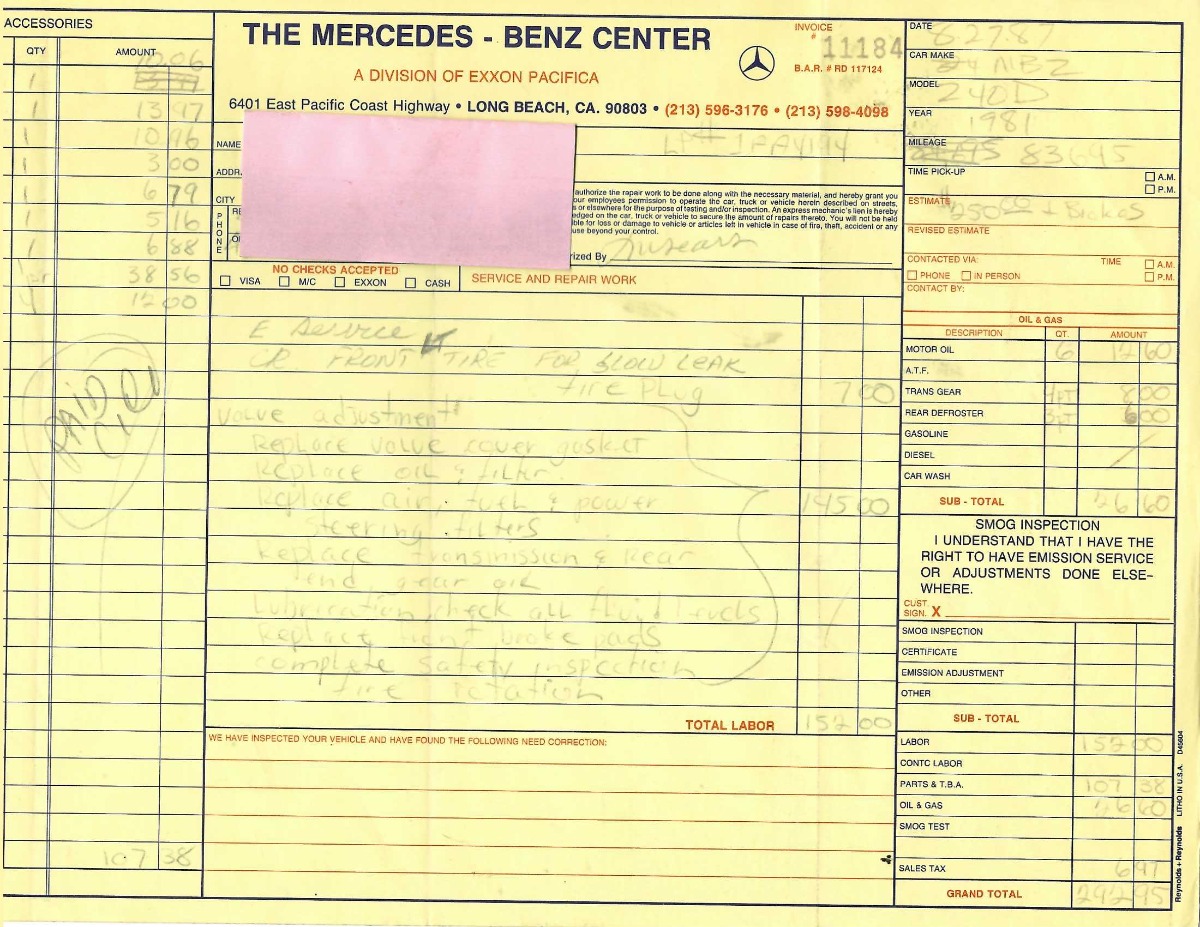 ACCESSORIES
QTY AMOUNT
10.06
1
1 13 97
1 10 96
1 3 00
1 6 79
1 5 16
1 6 88
1pr 38 56
4 12 00
PAID
107 38
THE MERCEDES - BENZ CENTER
A DIVISION OF EXXON PACIFICA
6401 East Pacific Coast Highway • LONG BEACH, CA. 90803 • (213) 596-3176 • (213) 598-4098
INVOICE
# 11184
B.A.R. # RD 117124
NAME
ADDR.
CITY
PHONE
RE
OF
authorize the repair work to be done along with the necessary material, and hereby grant you
our employees permission to operate the car, truck or vehicle herein described on streets,
s or elsewhere for the purpose of testing and/or inspection. An express mechanic's lien is hereby
edged on the car, truck or vehicle to secure the amount of repairs thereto. You will not be held
ble for loss or damage to vehicle or articles left in vehicle in case of fire, theft, accident or any
use beyond your control.
rized By
NO CHECKS ACCEPTED
VISA M/C EXXON CASH
SERVICE AND REPAIR WORK
E Service
CK FRONT LT TIRE FOR SLOW LEAK
tire plug 7 00
Valve adjustment
Replace valve cover gasket
Replace oil & filter
Replace air, fuel & power 145 00
steering filters
Replace transmission & Rear
end gear oil
Lubrication, check all fluid levels
Replace front brake pads
complete safety inspection
tire rotation
TOTAL LABOR 152 00
WE HAVE INSPECTED YOUR VEHICLE AND HAVE FOUND THE FOLLOWING NEED CORRECTION:
DATE 8.27.87
CAR MAKE MBZ
MODEL 240D
YEAR 1981
MILEAGE 83695
TIME PICK-UP A.M.
P.M.
ESTIMATE $250.00 +
REVISED ESTIMATE
CONTACTED VIA: TIME A.M.
PHONE IN PERSON P.M.
CONTACT BY:
OIL & GAS
DESCRIPTION QT. AMOUNT
MOTOR OIL 6 12 60
A.T.F.
TRANS GEAR 4PT 8 00
REAR DEFROSTER 3PT 6 00
GASOLINE
DIESEL
CAR WASH
SUB - TOTAL 26 60
SMOG INSPECTION
I UNDERSTAND THAT I HAVE THE
RIGHT TO HAVE EMISSION SERVICE
OR ADJUSTMENTS DONE ELSE-
WHERE.
CUST
SIGN. X
SMOG INSPECTION
CERTIFICATE
EMISSION ADJUSTMENT
OTHER
SUB - TOTAL
LABOR 152 00
CONTC LABOR
PARTS & T.B.A. 107 38
OIL & GAS 26 60
SMOG TEST
SALES TAX 6 97
GRAND TOTAL 292 95
Reynolds + Reynolds LITHO IN U.S.A. D45604